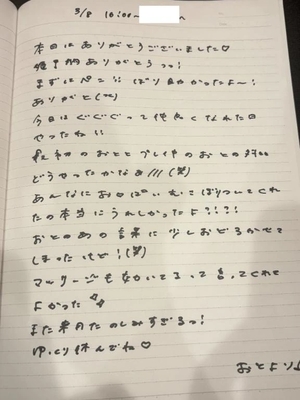 3/8 16:00~
本日はありがとうございました♡
ありがとうっっ!
まずはペン!! ばり良かったよ~!
ありがと(笑)
今日はぐぐぐって仲良くなれた日
やったね!!
最初のおとと プレイ中のおとの対比
どうやったかなぁ///(笑)
あんなにお口ぱい
たの本当にうれしかったよ????
おとのあの言葉に少しおどろかせて
しまったけど!(笑)
マッサージも って言ってくれて
よかった
また来月たのしみすぎるっ!
ゆっくり休んでね♡
おとより